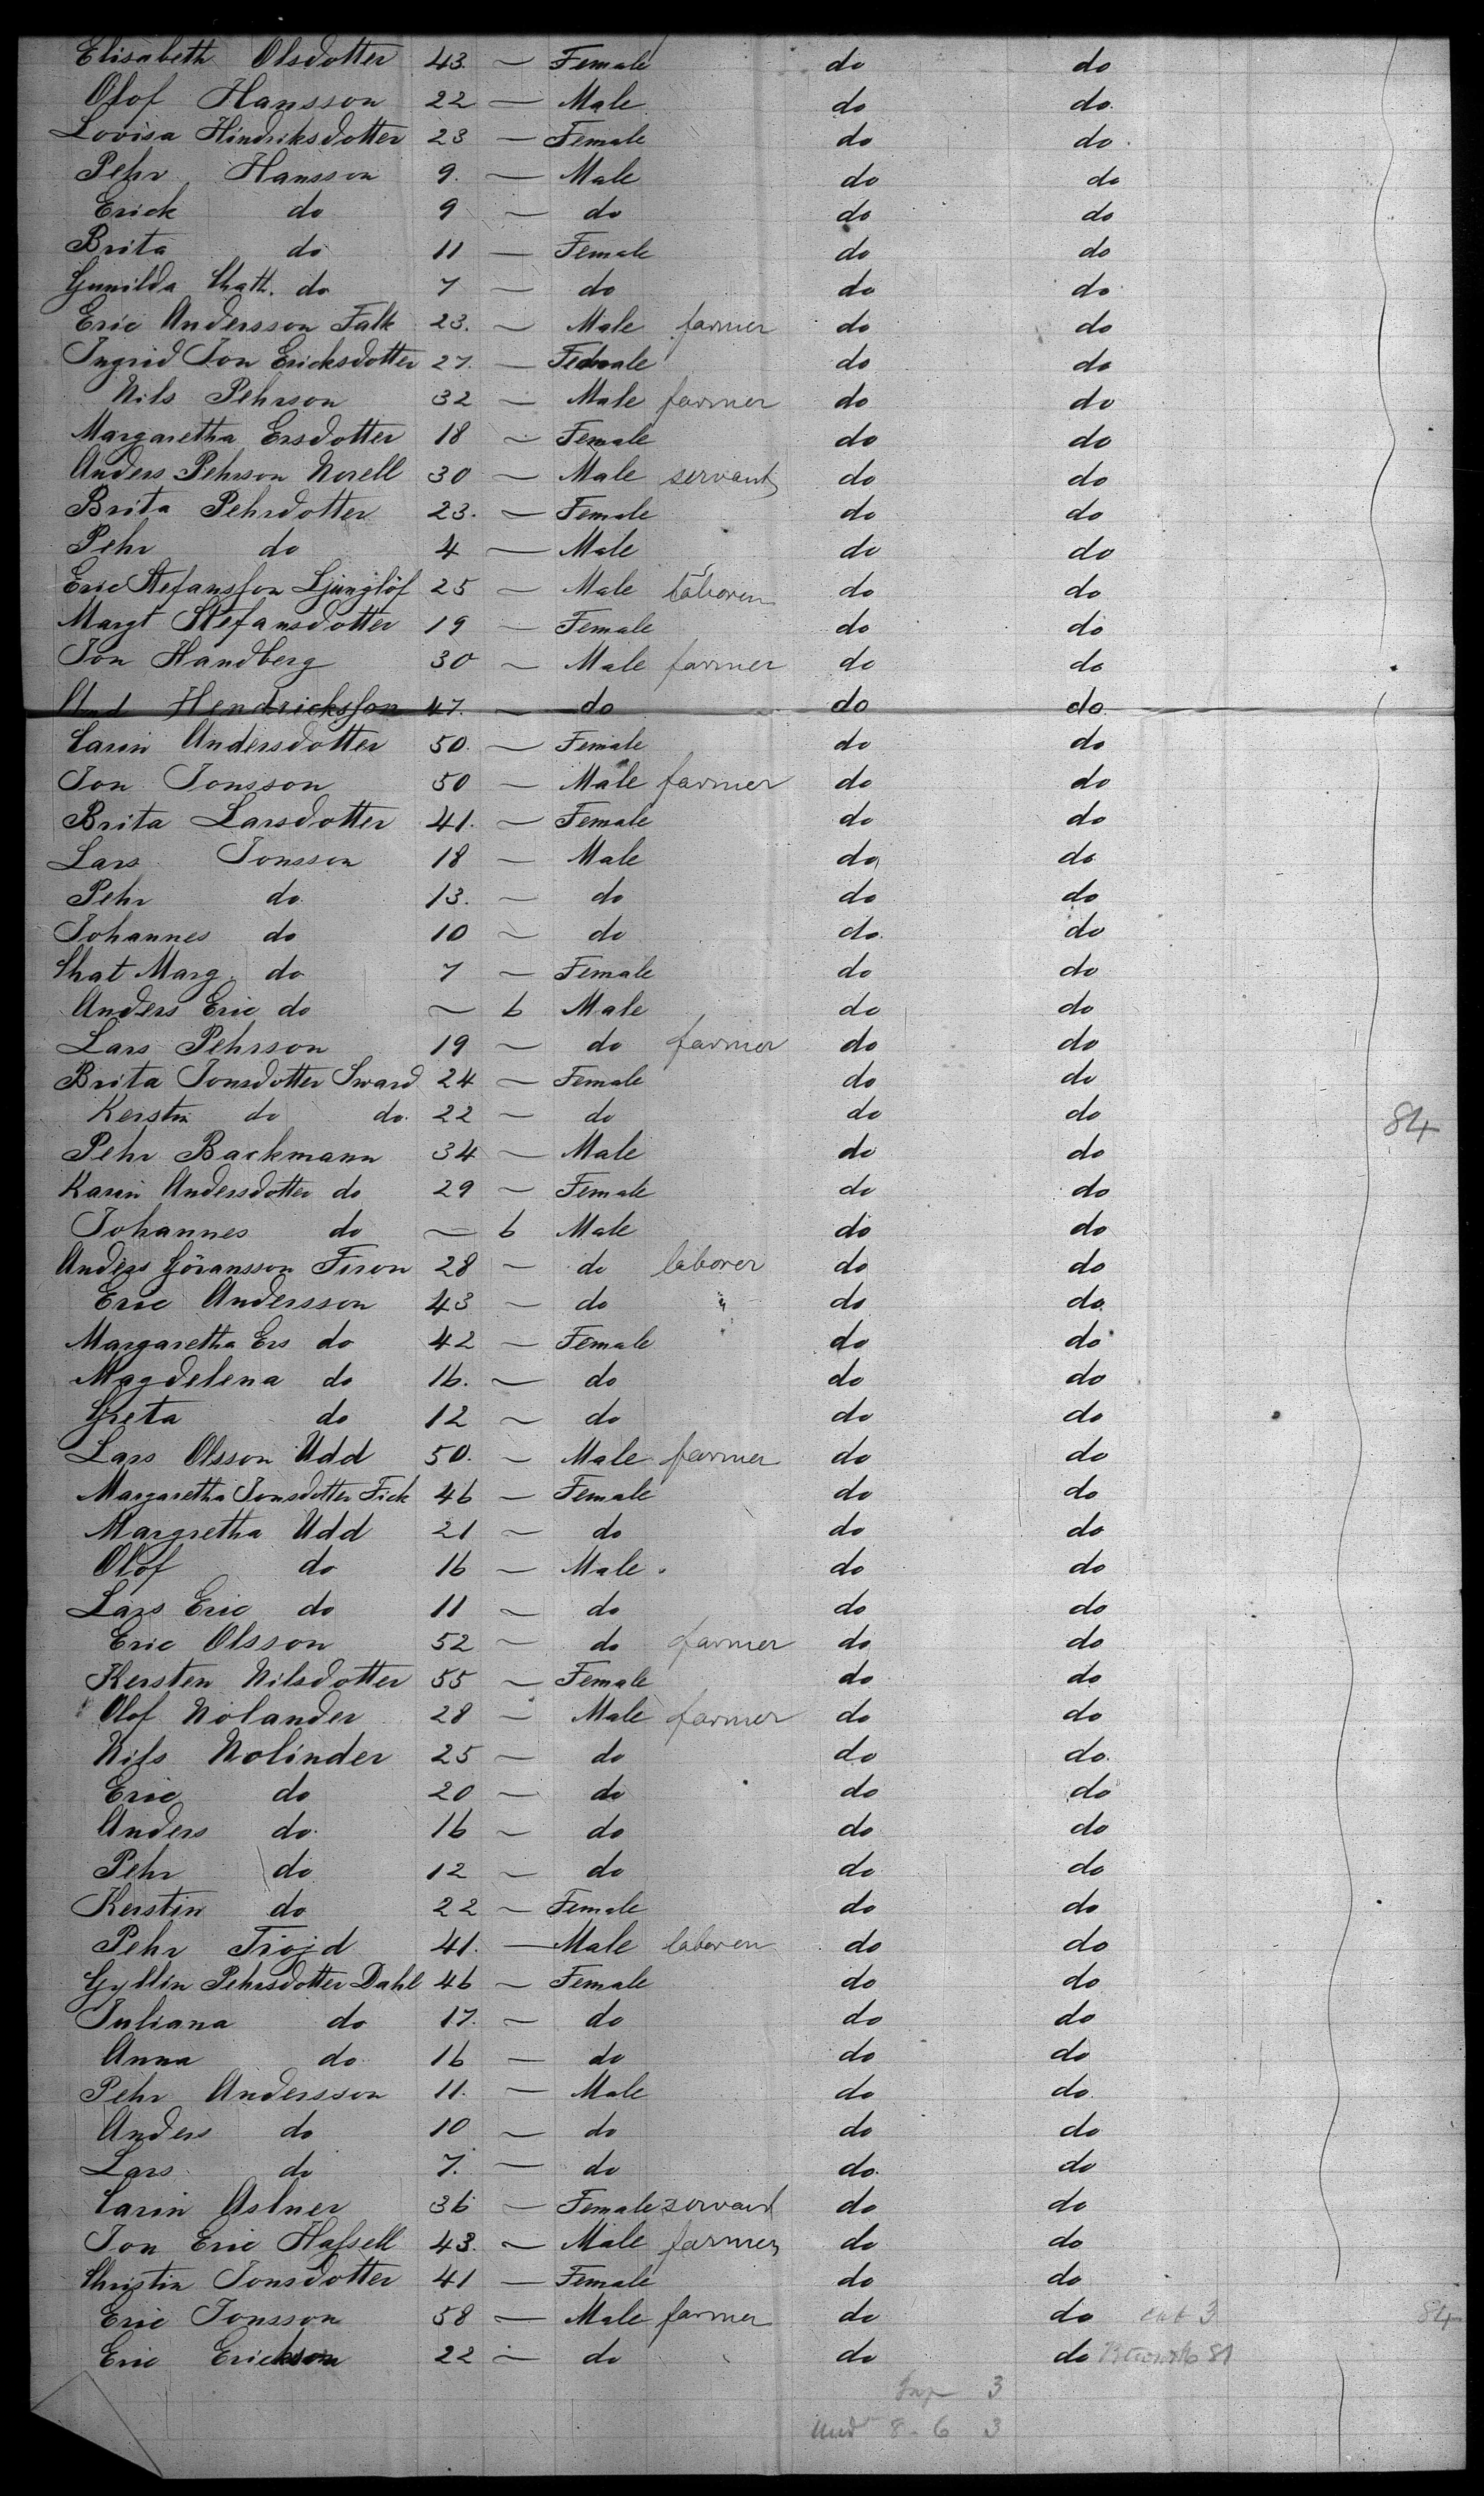 Elisabeth Olsdotter 43. — Female do do
Olof Hansson 22 — Male do do.
Lovisa Hindriksdotter 23 — Female do do.
Pehr Hansson 9. — Male do do
Erick do 9 — do do do
Brita do 11 — Female do do
Gunilda Chath. do 7 — do do do
Eric Andersson Falk 23. — Male farmer do do
Ingrid Jon Ericksdotter 27. — Female do do
Nils Pehrson 32 — Male farmer do do
Margaretha Ersdotter 18 — Female do do
Anders Pehrson Norell 30 — Male servant do do
Brita Pehrsdotter 23. — Female do do
Pehr do 4 — Male do do
Eric Stefansson Ljunglöf 25 — Male laborer do do
Margt Stefansdotter 19 — Female do do
Jon Handberg 30 — Male farmer do do
And Hendricksson 47. — do do do
Carin Andersdotter 50. — Female do do
Jon Jonsson 50 — Male farmer do do
Brita Larsdotter 41. — Female do do
Lars Jonsson 18 — Male do do
Pehr do 13. — do do do
Johannes do 10 — do do. do
Chat Marg. do 7 — Female do do
Anders Eric do — 6 Male do do
Lars Pehrsson 19 — do farmer do do
Brita Jonsdotter Sward 24 — Female do do
Kerstin do do. 22 — do do do
84
Pehr Backmann 34 — Male do do
Karin Andersdotter do 29 — Female do do
Johannes do — 6 Male do do
Anders Göransson Firon 28 — do laborer do do
Eric Andersson 43 — do " do do
Margaretha Ers do 42 — Female do do
Magdelena do 16. — do do do
Greta do 12 — do do do
Lars Olsson Udd 50. — Male farmer do do
Margaretha Jonsdotter Fick 46 — Female do do
Margretha Udd 21 — do do do
Olof do 16 — Male. do do
Lars Eric do 11 — do do do
Eric Olsson 52 — do farmer do do
Kersten Nilsdotter 55 — Female do do
Olof Nolander 28 — Male farmer do do
Nils Nolinder 25 — do do do.
Eric do 20 — do do do
Anders do. 16 — do do do
Pehr do 12 — do do do
Kerstin do 22 — Female do do
Pehr Frojd 41. — Male laborer do do
Gyllin Pehrsdotter Dahl 46 — Female do do
Juliana do 17. — do do do
Anna do. 16 — do do do
Pehr Andersson 11. — Male do do.
Anders do 10 — do do do
Lars do 7. — do do. do
Carin Aslner 36 — Female servant do do
Jon Eric Hassell 43. — Male farmer do do
Christin Jonsdotter 41 — Female do do
Eric Jonsson 58 — Male farmer do do 3 84
Eric Erickson 22 — do do do 81
3
8 - 6 3